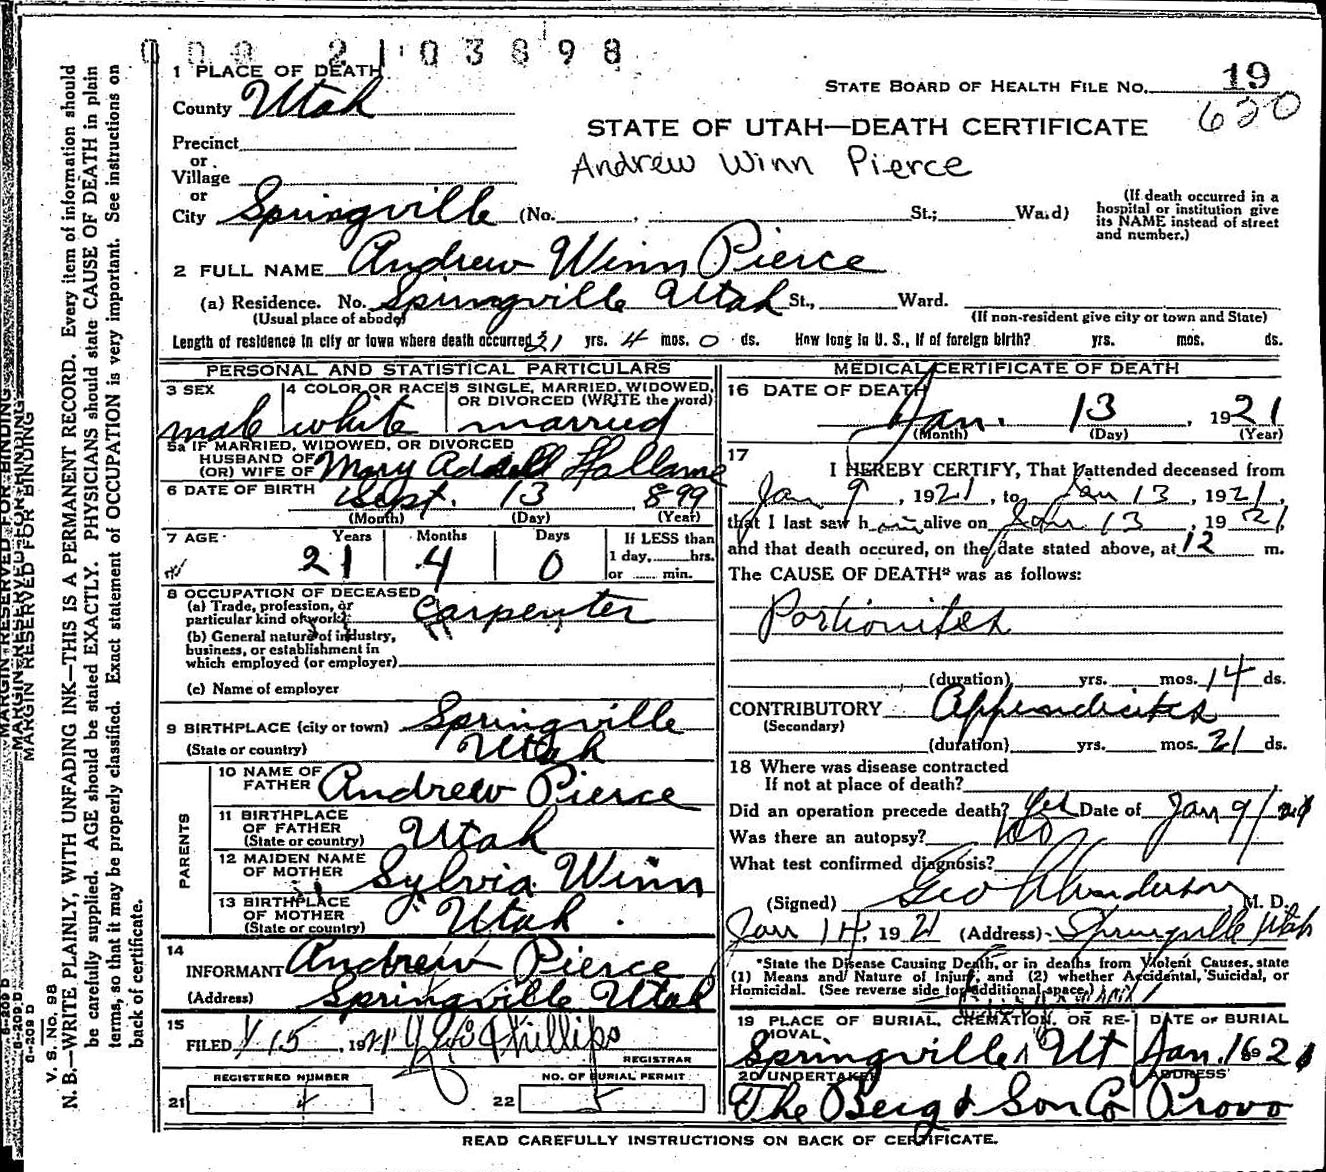 000 2103898
1 PLACE OF DEATH
STATE BOARD OF HEALTH FILE NO. 19
County Utah
620
STATE OF UTAH—DEATH CERTIFICATE
Precinct
Andrew Winn Pierce
or
Village
or
City Springville (No. , St.; Ward)
(If death occurred in a
hospital or institution give
its NAME instead of street
and number.)
2 FULL NAME Andrew Winn Pierce
(a) Residence. No. Springville Utah St., Ward.
(Usual place of abode)
(If non-resident give city or town and State)
Length of residence in city or town where death occurred 21 yrs. 4 mos. 0 ds. How long in U. S., if of foreign birth? yrs. mos. ds.
PERSONAL AND STATISTICAL PARTICULARS
3 SEX
male
4 COLOR OR RACE
white
5 SINGLE, MARRIED, WIDOWED,
OR DIVORCED (WRITE the word)
married
5a IF MARRIED, WIDOWED, OR DIVORCED
HUSBAND OF
(OR) WIFE OF Mary
6 DATE OF BIRTH Sept. 13 899
(Month) (Day) (Year)
7 AGE
Years Months Days
21 4 0
If LESS than
1 day, hrs.
or min.
8 OCCUPATION OF DECEASED
(a) Trade, profession, or
particular kind of work Carpenter
(b) General nature of industry,
business, or establishment in
which employed (or employer)
(c) Name of employer
9 BIRTHPLACE (city or town) Springville
(State or country) Utah
PARENTS
10 NAME OF
FATHER Andrew Pierce
11 BIRTHPLACE
OF FATHER
(State or country) Utah
12 MAIDEN NAME
OF MOTHER Sylvia Winn
13 BIRTHPLACE
OF MOTHER
(State or country) Utah
14
INFORMANT Andrew Pierce
(Address) Springville Utah
15
FILED 1/15, 1921 Phillips
REGISTRAR
REGISTERED NUMBER
21 4
NO. OF BURIAL PERMIT
22 5
MEDICAL CERTIFICATE OF DEATH
16 DATE OF DEATH
Jan. 13, 1921
(Month) (Day) (Year)
17
I HEREBY CERTIFY, That I attended deceased from
Jan 9, 1921, to Jan 13, 1921,
that I last saw him alive on Jan 13, 1921
and that death occured, on the date stated above, at 12 m.
The CAUSE OF DEATH* was as follows:
Portionites
(duration) yrs. mos. 14 ds.
CONTRIBUTORY Appendicites
(Secondary)
(duration) yrs. mos. 21 ds.
18 Where was disease contracted
If not at place of death?
Did an operation precede death? Yes Date of Jan 9/21
Was there an autopsy? No
What test confirmed diagnosis?
(Signed) Geo Anderson, M. D.
Jan 14, 1921 (Address) Springville Utah
*State the Disease Causing Death, or in deaths from Violent Causes, state
(1) Means and Nature of Injury, and (2) whether Accidental, Suicidal, or
Homicidal. (See reverse side for additional space.)
19 PLACE OF BURIAL, CREMATION, OR RE-
MOVAL
Springville, Ut
DATE OF BURIAL
Jan. 16 1921
20 UNDERTAKER
The Berg & Son Co
ADDRESS
Provo
READ CAREFULLY INSTRUCTIONS ON BACK OF CERTIFICATE.
MARGIN RESERVED FOR BINDING
V. S. No. 98
N. B.—WRITE PLAINLY, WITH UNFADING INK—THIS IS A PERMANENT RECORD. Every item of information should
be carefully supplied. AGE should be stated EXACTLY. PHYSICIANS should state CAUSE OF DEATH in plain
terms, so that it may be properly classified. Exact statement of OCCUPATION is very important. See instructions on
back of certificate.